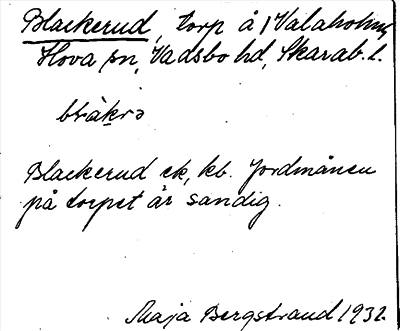 Blackerud, torp å 1 Valaholm,
Hova sn, Vadsbo hd, Skarab. l.
blàkrə
Blackerud ek, kb. Jordmånen
på torpet är sandig.
Maja Bergstrand 1932.